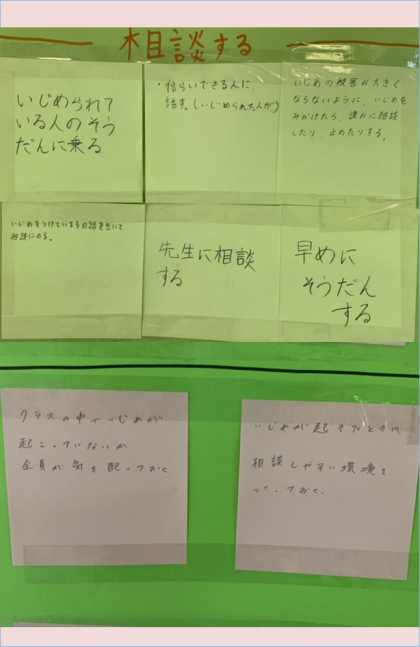 相談する
いじめられて
いる人のそう
だんに乗る
・信らいできる人に、
話す。(いじめられた人が)
いじめの被害が大きく
ならないように、いじめを
みかけたら、誰かに相談
したり、止めたりする。
いじめをうけている子の話を聞いて
相談にのる。
先生に相談
する
早めに
そうだん
する
クラスの中でいじめが
起こっていないか
全員が気を配っておく
いじめが起きたときに
相談しやすい環境を
つくっておく。